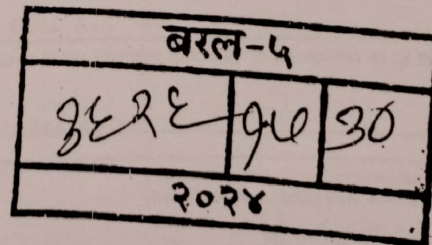 बरल-५
३६२६ १५ ३०
२०२४